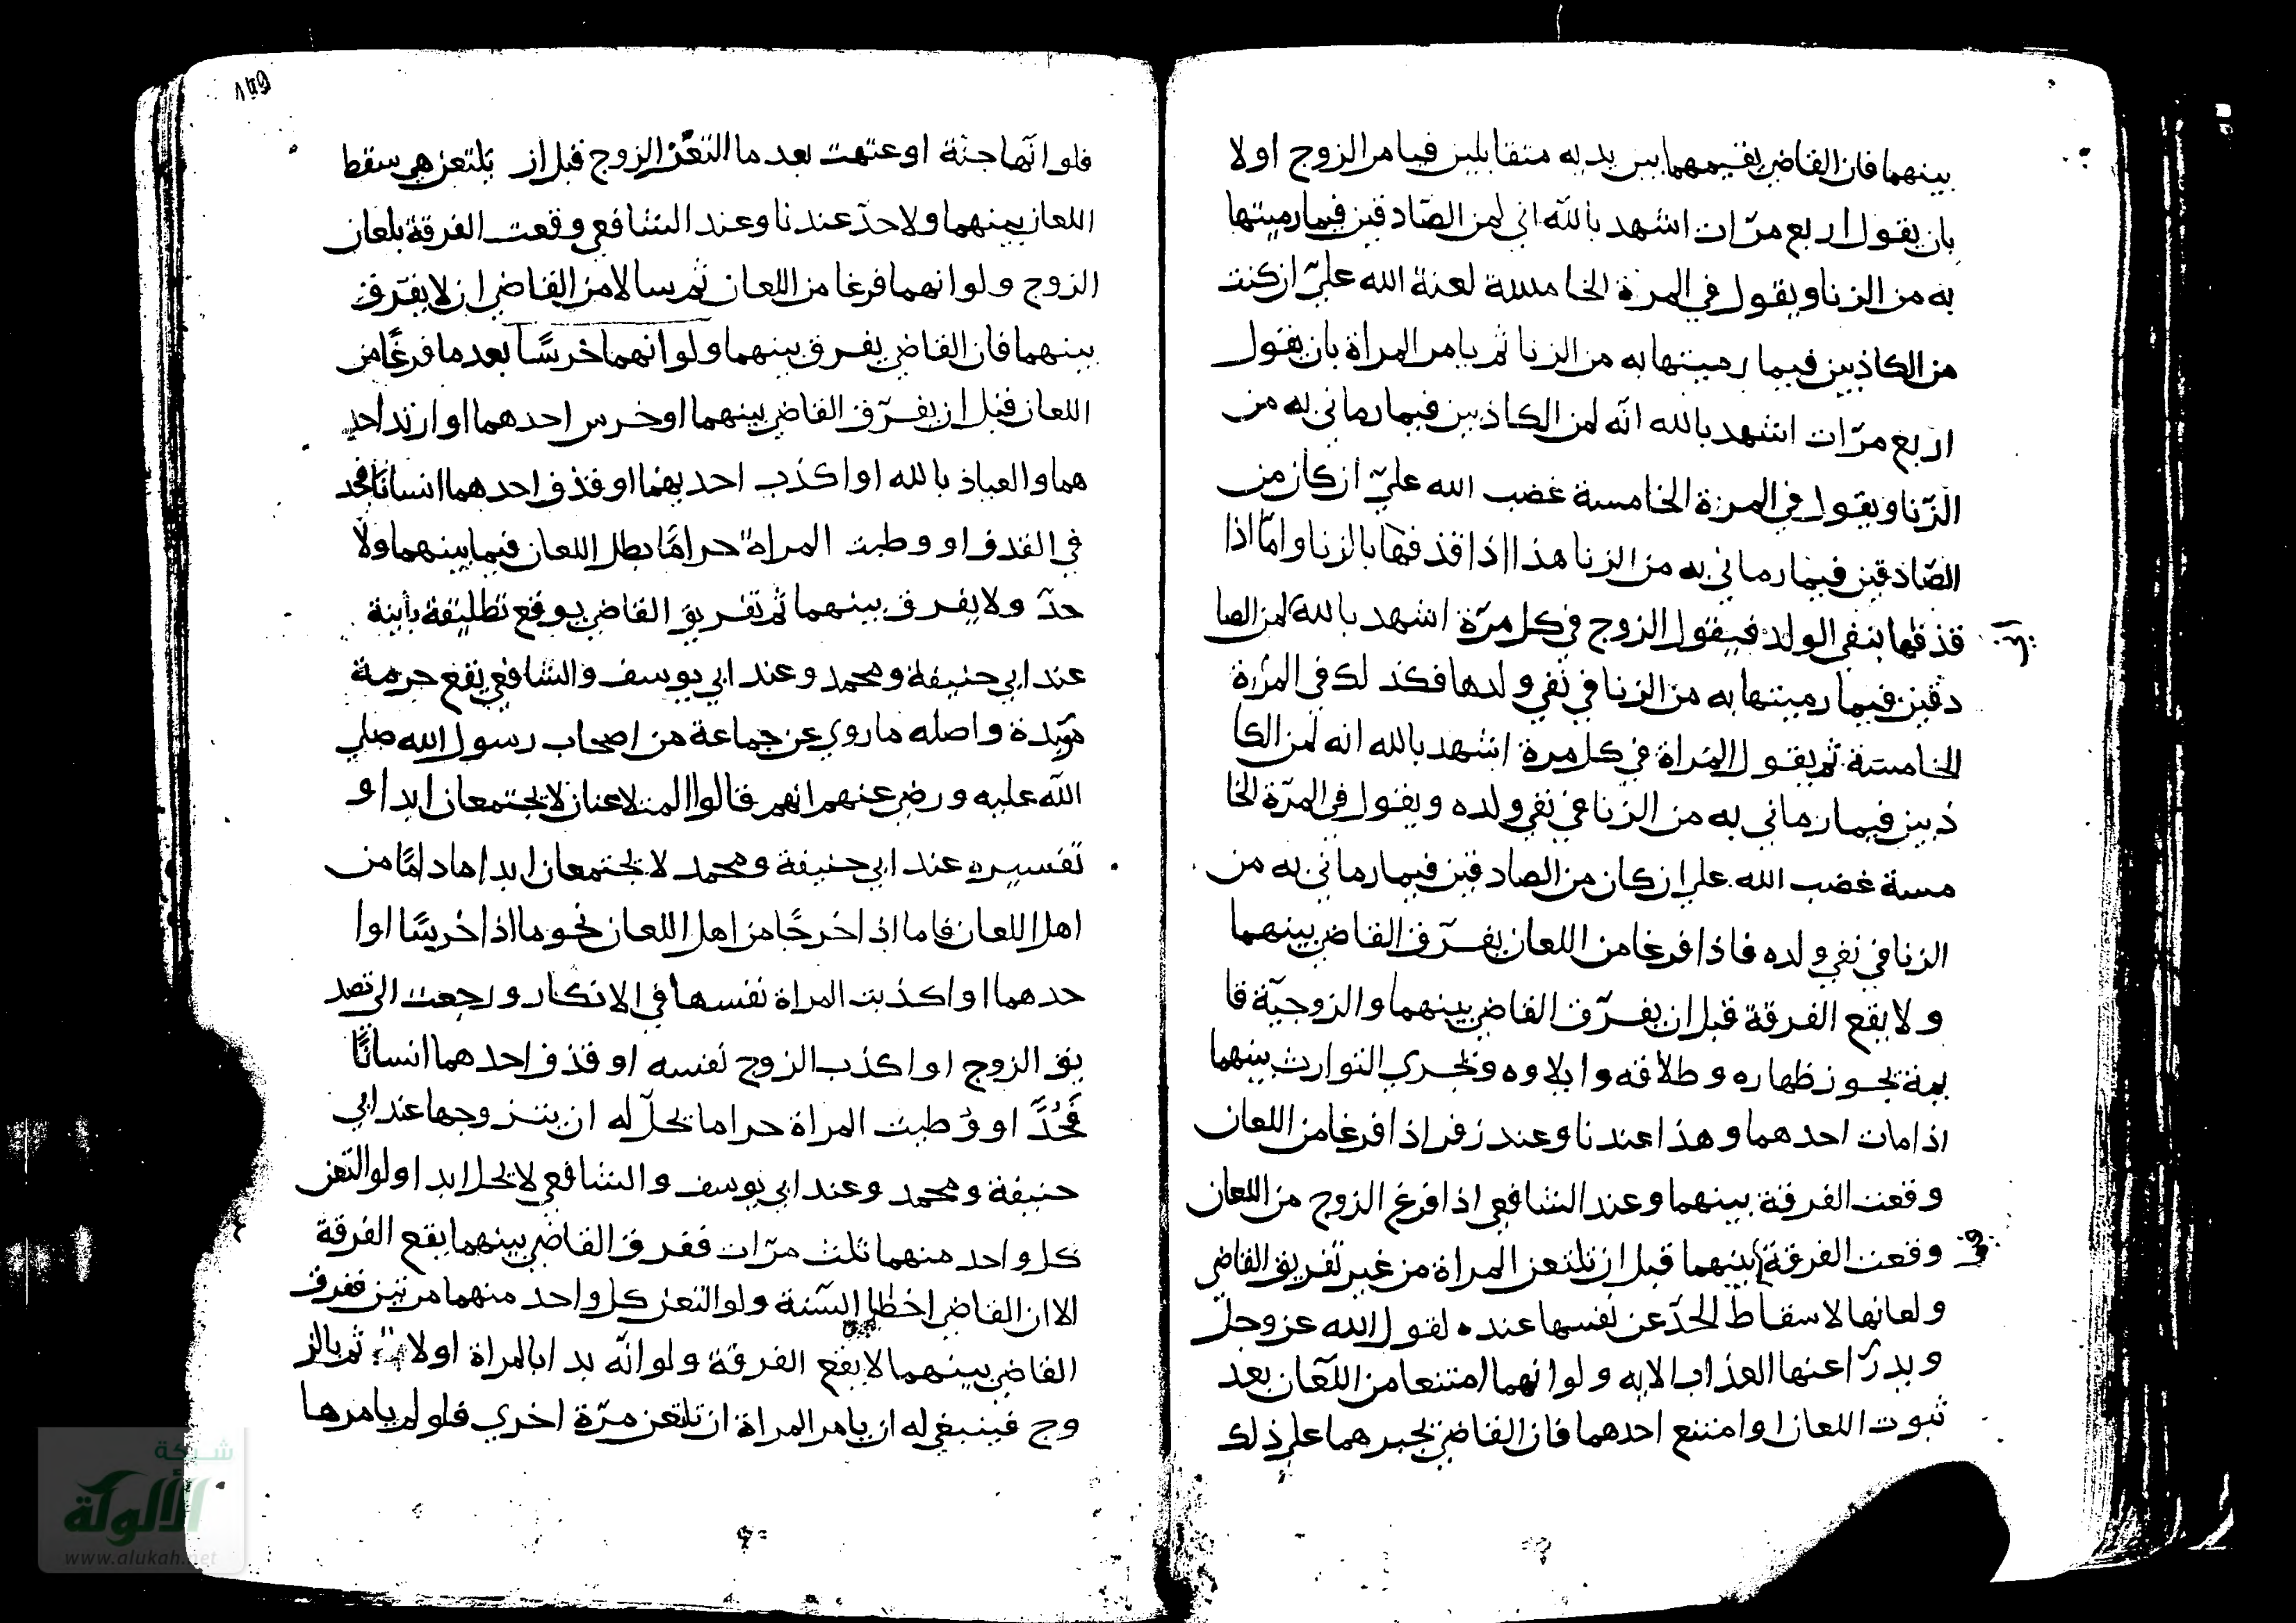 بينهما فان القاضي يقيمهما بين يديه متقابلين فيامر الزوج اولا
بان يقول اربع مرّات اشهد بالله اني لمن الصّادقين فيما رميتها
به من الزنا ويقول في المرة الخامسة لعنة الله عليّ ان كنت
من الكاذبين فيما رميتها به من الزنا ثم يامر المراة بان تقول
اربع مرّات اشهد بالله انّه لمن الكاذبين فيما رماني به من
الزّنا ويقول في المرة الخامسة غضب الله عليّ ان كان من
الصّادقين فيما رماني به من الزنا هذا اذا قذفها بالزنا وامّا اذا
قذفها بنفي الولد فيقول الزوج في كل مرّة اشهد بالله لمن الصا
دقين فيما رميتها به من الزنا في نفي ولدها فكذلك في المرّة
الخامسة ثم يقول المراة في كل مرة اشهد بالله انه لمن الكا
ذبين فيما رماني به من الزنا في نفي ولده ويقول في المرّة الخا
مسة غضب الله علي ان كان من الصادقين فيما رماني به من
الزنا في نفي ولده فاذا فرغا من اللعان يفرّق القاضي بينهما
ولا يقع الفرقة قبل ان يفرّق القاضي بينهما والزوجيّة قا
يمة يجوز ظهاره وطلاقه وايلاوه ويجري التوارث بينهما
اذا مات احدهما وهذا عندنا وعند زفر اذا فرغا من اللعان
وقعت الفرقة بينهما وعند الشافعي اذا فرغ الزوج من اللعان
وقعت الفرقة بينهما قبل ان تلتعن المراة من غير تفريق القاضي
ولعانها لاسقاط الحدّ عن نفسها عنده لقول الله عز وجل
ويدرّا عنها العذاب الايه ولو انهما امتنعا من اللعان بعد
ثبوت اللعان او امتنع احدهما فان القاضي يجبرهما علي ذلك
١٥٥
فلو انّها جنّة او عتهت بعد ما التعن الزوج قبل ان تلتعن هي سقط
اللعان بينهما ولا حدّ عندنا وعند الشافعي وقعت الفرقة بلعان
الزوج ولو انهما فرغا من اللعان ثم سالا من القاضي ان لا يفرّق
بينهما فان القاضي يفرق بينهما ولو انهما خرسًا بعد ما فرغًا من
اللعان قبل ان يفرّق القاضي بينهما او خرس احدهما او ارتد احد
هما والعياذ بالله او اكذب احديهما او قذف احدهما انسانًا فحد
في القذف او وطيت المراة حرامًا بطل اللعان فيما بينهما ولا
حدّ ولا يفرق بينهما ثم تفريق القاضي يوقع تطليقة باينة
عند ابي حنيفة ومحمد وعند ابي يوسف والشافعي يقع حرمة
موبدة واصله ما روي عن جماعة من اصحاب رسول الله صلي
الله عليه ورضي عنهم انهم قالوا المتلاعنان لا يجتمعان ابدا و
تفسيره عند ابي حنيفة ومحمد لا يجتمعان ابدا ما دامًا من
اهل اللعان فاما اذا خرجًا من اهل اللعان نحو ما اذا خرسًا او ا
حدهما او اكذبت المراة نفسها في الانكار ورجعت الي تصد
يق الزوج او اكذب الزوج نفسه او قذف احدهما انسانًا
فَحُدَّ او وُطيت المراة حراما يحلّ له ان يتزوجها عند ابي
حنيفة ومحمد وعند ابي يوسف والشافعي لا يحل ابدا ولو التعن
كل واحد منهما ثلث مرّات ففرق القاضي بينهما يقع الفرقة
الا ان القاضي اخطا السّنة ولو التعن كل واحد منهما مرتين ففرق
القاضي بينهما لا يقع الفرقة ولو انّه بدا بالمراة اولا ثم بالز
وج فينبغي له ان يامر المراة ان تلتعن مرّة اخري فلو لم يامرها
شبكة
الألوكة
www.alukah.net